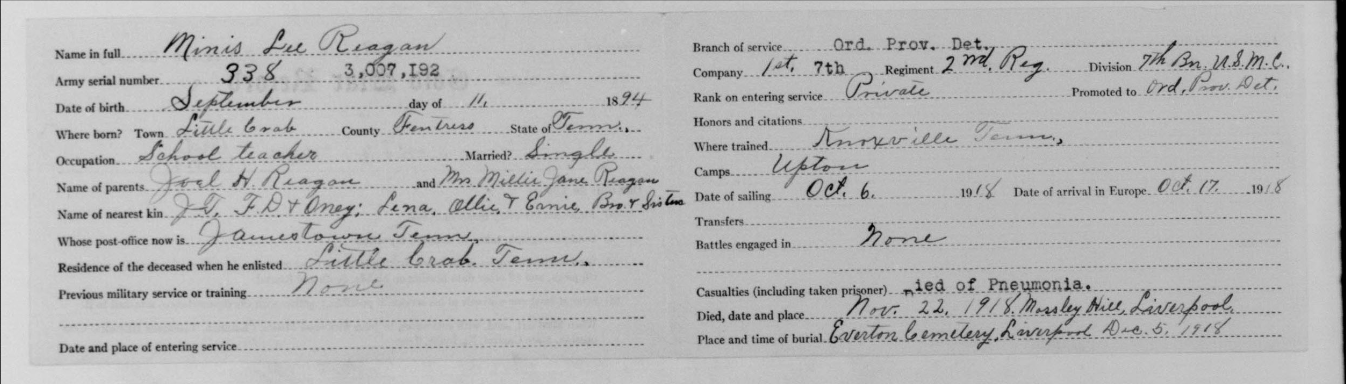 Name in full Minis Lee Reagan
Army serial number 338 3,007,192
Date of birth September day of 11, 1894
Where born? Town Little Crab County Fentress State of Tenn.,
Occupation School teacher Married? Single
Name of parents Joel H. Reagan and Mrs Millie Jane Reagan
Name of nearest kin J.T, F.D & Oney; Lena, Ollie, & Ernie, Bro. & Sisters
Whose post-office now is Jamestown Tenn.
Residence of the deceased when he enlisted Little Crab. Tenn.,
Previous military service or training None
Date and place of entering service
Branch of service Ord. Prov. Det.
Company 1st, 7th Regiment 2nd, Reg. Division 7th Bn. U.S.M.C.,
Rank on entering service Private Promoted to Ord, Prov. Det.
Honors and citations
Where trained Knoxville Tenn.,
Camps Upton
Date of sailing Oct. 6. 1918 Date of arrival in Europe Oct. 17. 1918
Transfers
Battles engaged in None
Casualties (including taken prisoner) ied of Pneumonia.
Died, date and place Nov. 22, 1918. Mossley Hill, Liverpool,
Place and time of burial Everton Cemetery, Liverpool Dec. 5, 1918